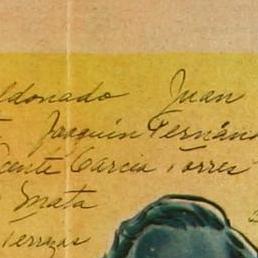 ldonado Juan
Joaquin Fernán
cente Garcia Torres
Mata
Terrazas